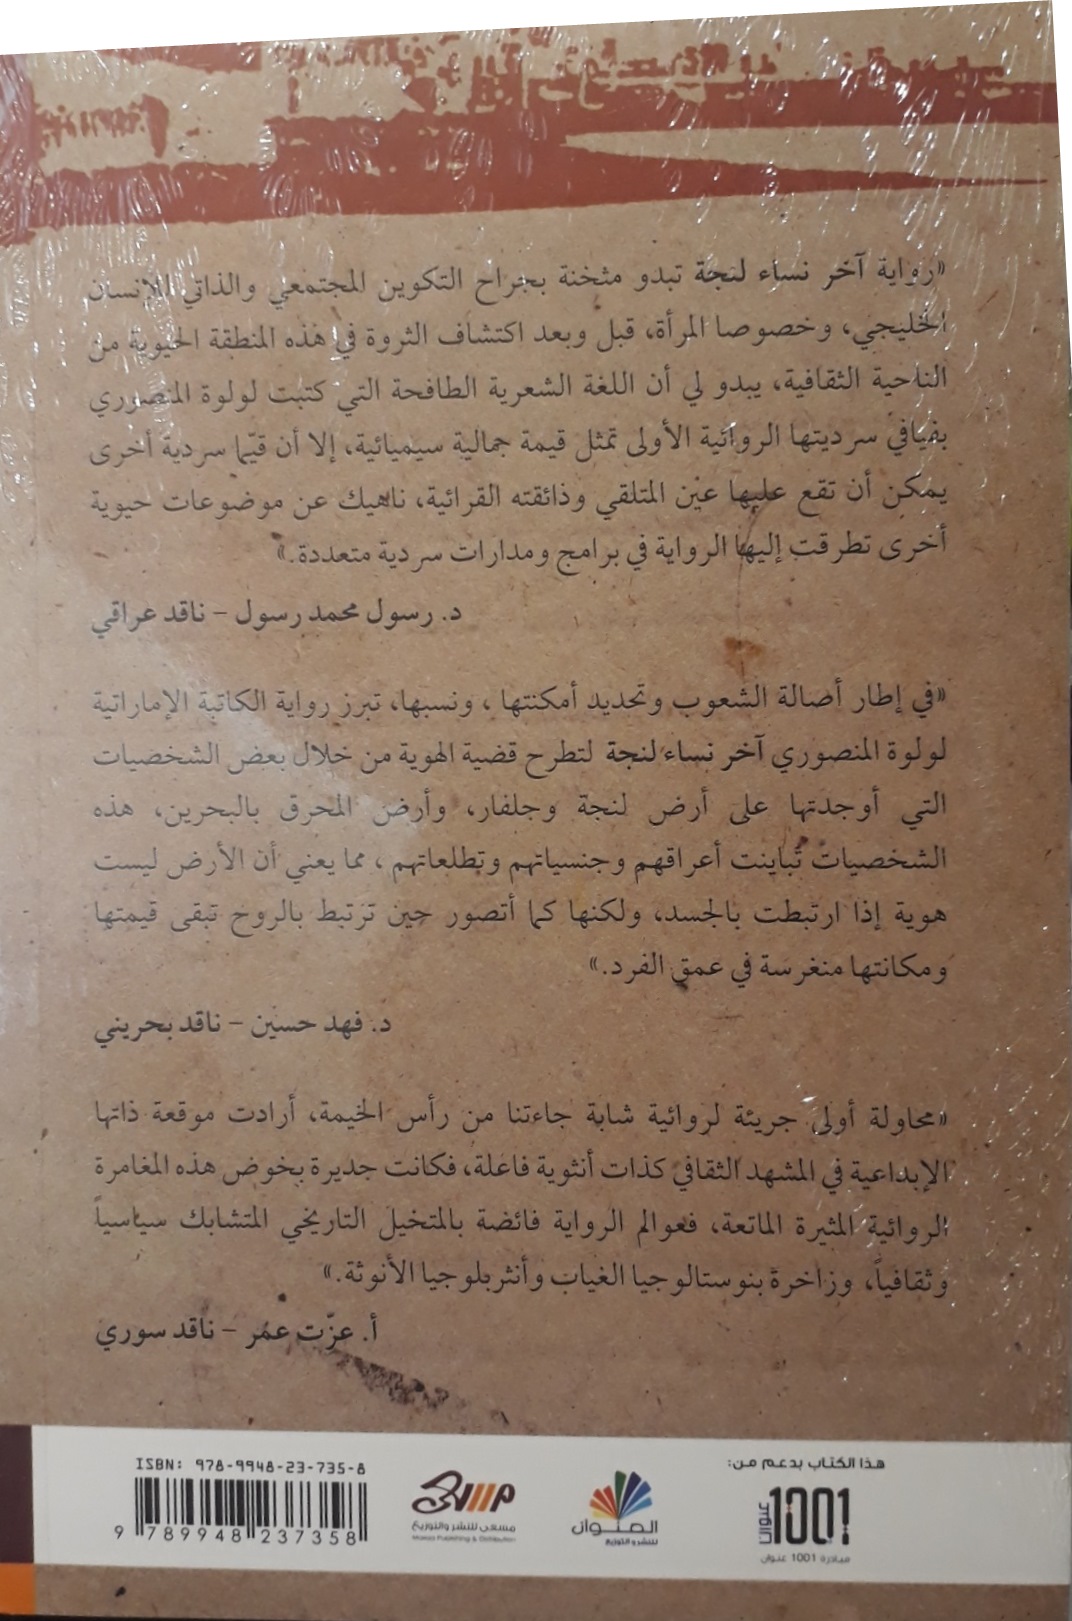 «رواية آخر نساء لنجة تبدو مثخنة بجراح التكوين المجتمعي والذاتي للإنسان
الخليجي، وخصوصا المرأة، قبل وبعد اكتشاف الثروة في هذه المنطقة الحيوية من
الناحية الثقافية، يبدو لي أن اللغة الشعرية الطافحة التي كتبت لولوة المنصوري
بفيافي سرديتها الروائية الأولى تمثل قيمة جمالية سيميائية، إلا أن قيّما سردية أخرى
يمكن أن تقع عليها عين المتلقي وذائقته القرائية، ناهيك عن موضوعات حيوية
أخرى تطرقت إليها الرواية في برامج ومدارات سردية متعددة.»
د. رسول محمد رسول – ناقد عراقي
«في إطار أصالة الشعوب وتحديد أمكنتها ، ونسبها، تبرز رواية الكاتبة الإماراتية
لولوة المنصوري آخر نساء لنجة لتطرح قضية الهوية من خلال بعض الشخصيات
التي أوجدتها على أرض لنجة وجلفار، وأرض المحرق بالبحرين، هذه
الشخصيات تباينت أعراقهم وجنسياتهم وتطلعاتهم ، مما يعني أن الأرض ليست
هوية إذا ارتبطت بالجسد، ولكنها كما أتصور حين ترتبط بالروح تبقى قيمتها
ومكانتها منغرسة في عمق الفرد.»
د. فهد حسين – ناقد بحريني
«محاولة أولى جريئة لروائية شابة جاءتنا من رأس الخيمة، أرادت موقعة ذاتها
الإبداعية في المشهد الثقافي كذات أنثوية فاعلة، فكانت جديرة بخوض هذه المغامرة
الروائية المثيرة الماتعة، فعوالم الرواية فائضة بالمتخيل التاريخي المتشابك سياسياً
وثقافياً، وزاخرة بنوستالوجيا الغياب وأنثربلوجيا الأنوثة.»
أ. عزّت عمر – ناقد سوري
هذا الكتاب بدعم من:
1001 عنوان
مبادرة 1001 عنوان
العنوان
للنشر والتوزيع
مسعى
مسعى للنشر والتوزيع
Masaa Publishing & Distribution
ISBN: 978-9948-23-735-8
9 789948 237358